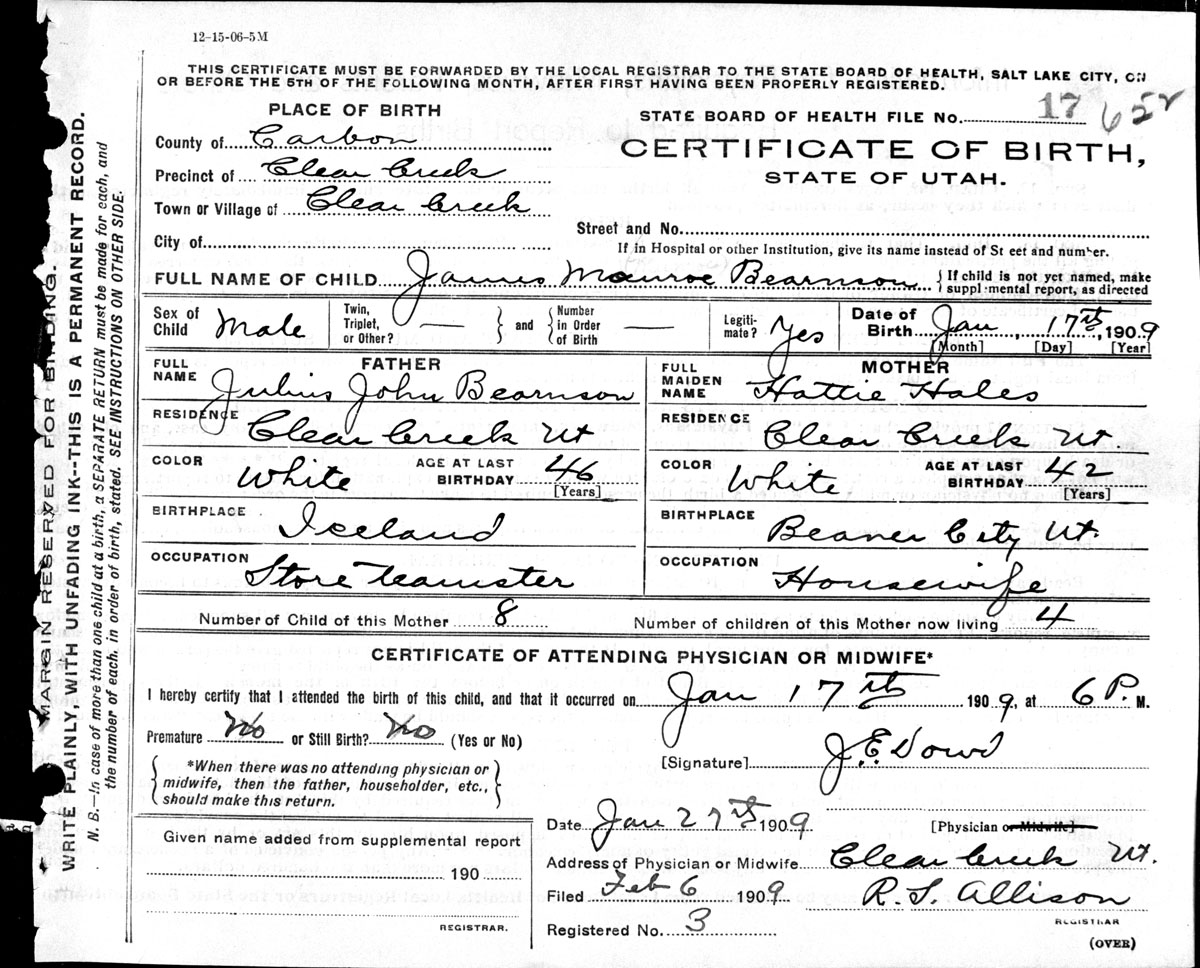 12-15-06-5M
THIS CERTIFICATE MUST BE FORWARDED BY THE LOCAL REGISTRAR TO THE STATE BOARD OF HEALTH, SALT LAKE CITY, ON
OR BEFORE THE 5TH OF THE FOLLOWING MONTH, AFTER FIRST HAVING BEEN PROPERLY REGISTERED.
PLACE OF BIRTH
STATE BOARD OF HEALTH FILE No. 17 652
County of Carbon
CERTIFICATE OF BIRTH,
Precinct of Clear Creek
STATE OF UTAH.
Town or Village of Clear Creek
Street and No.
City of
If in Hospital or other Institution, give its name instead of St eet and number.
FULL NAME OF CHILD James Monroe Bearnson { If child is not yet named, make
suppl mental report, as directed
Sex of Child Male Twin, Triplet, or Other? — } and { Number in Order of Birth — Legiti-mate? Yes Date of Birth Jan, 17th, 1909
[Month] [Day] [Year]
FATHER
MOTHER
FULL NAME Julius John Bearnson
FULL MAIDEN NAME Hattie Hales
RESIDENCE Clear Creek Ut
RESIDENCE Clear Creek Ut
COLOR White AGE AT LAST BIRTHDAY 46 [Years]
COLOR White AGE AT LAST BIRTHDAY 42 [Years]
BIRTHPLACE Iceland
BIRTHPLACE Beaver City Ut.
OCCUPATION Store teamster
OCCUPATION Housewife
Number of Child of this Mother 8 Number of children of this Mother now living 4
CERTIFICATE OF ATTENDING PHYSICIAN OR MIDWIFE*
I hereby certify that I attended the birth of this child, and that it occurred on Jan 17th 1909, at 6 P. M.
Premature No or Still Birth? No (Yes or No)
[Signature] J. E. Dowd
{ *When there was no attending physician or
midwife, then the father, householder, etc.,
should make this return. }
Date Jan 27th 1909 [Physician or Midwife]
Given name added from supplemental report
Address of Physician or Midwife Clear Creek Ut.
190
Filed Feb 6 1909 R. S. Allison
REGISTRAR
REGISTRAR.
Registered No. 3
(OVER)
MARGIN RESERVED FOR BINDING.
WRITE PLAINLY WITH UNFADING INK--THIS IS A PERMANENT RECORD.
N. B.—In case of more than one child at a birth, a SEPARATE RETURN must be made for each, and
the number of each, in order of birth, stated. SEE INSTRUCTIONS ON OTHER SIDE.